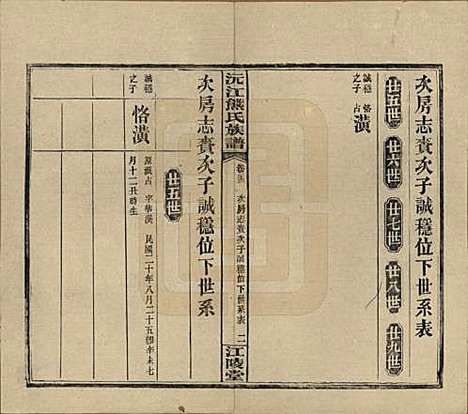 次房志賚次子誠穩位下世系表
廿五世 廿六世 廿七世 廿八世 廿九世
誠穩 恪
之子 占 潢
沅江熊氏族譜
卷 次房志賚次子誠穩位下世系表 二
江陵堂
次房志賚次子誠穩位下世系
廿五世
誠穩
之子
恪潢 原派占 字華漢 民國二十年八月二十五
月十二丑時生